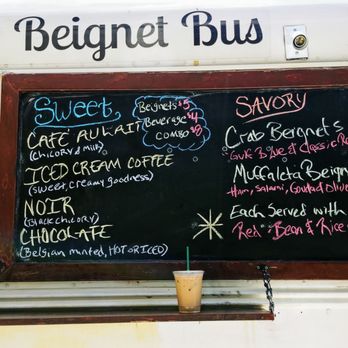 Beignet Bus
Sweet
Beignets $5
Beverage $4
COMBO $8
CAFÉ AU LAIT
(chicory & milk)
ICED CREAM COFFEE
(sweet, creamy goodness)
NOIR
(black chicory)
CHOCOLATE
(Belgian minted, HOT or ICED)
SAVORY
Crab Beignets
Muffaleta Beign
Ham, Salami, Gouda & Olive
Each Served with
Red Bean & Rice